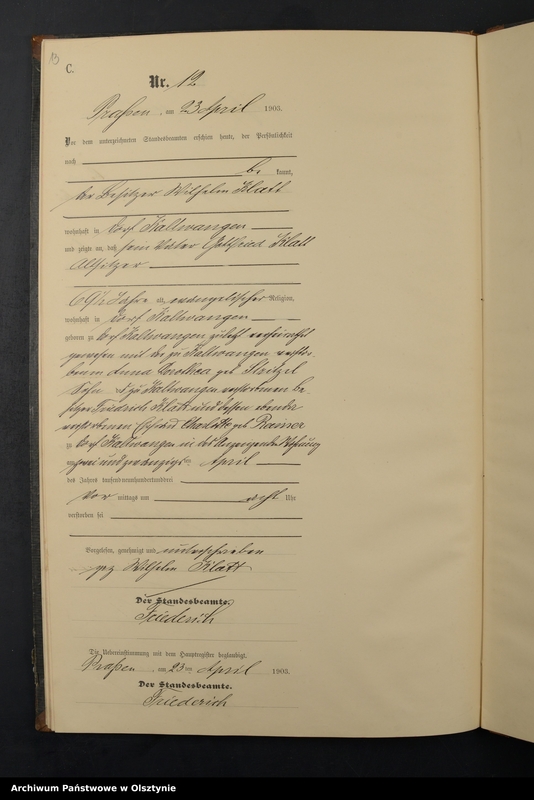 13
C.
Nr. 12
Praßen, am 23 April 1903.
Vor dem unterzeichneten Standesbeamten erschien heute, der Persönlichkeit
nach
be kannt,
der Besitzer Wilhelm Klatt
wohnhaft in Dorf Kaltwangen
und zeigte an, daß sein Vater Gottfried Klatt
Altsitzer
69½ Jahre alt, evangelischer Religion,
wohnhaft in Dorf Kaltwangen
geboren zu Dorf Kaltwangen zuletzt verheirathet
gewesen mit der zu Kaltwangen verstor-
benen Anna Dorothea geb
Sohn des zu Kaltwangen verstorbenen Be-
sitzer Friedrich Klatt und dessen ebenda
verstorbenen Ehefrau Charlotte geb
zu Dorf Kaltwangen in der Wohnung
am zwei und zwanzigsten April
des Jahres tausend neunhundert und drei
Vor mittags um acht Uhr
verstorben sei
Vorgelesen, genehmigt und unterschrieben
gez Wilhelm Klatt
Der Standesbeamte.
Friederich
Die Uebereinstimmung mit dem Hauptregister beglaubigt.
Praßen, am 23 ten April 1903.
Der Standesbeamte.
Friederich
Archiwum Państwowe w Olsztynie